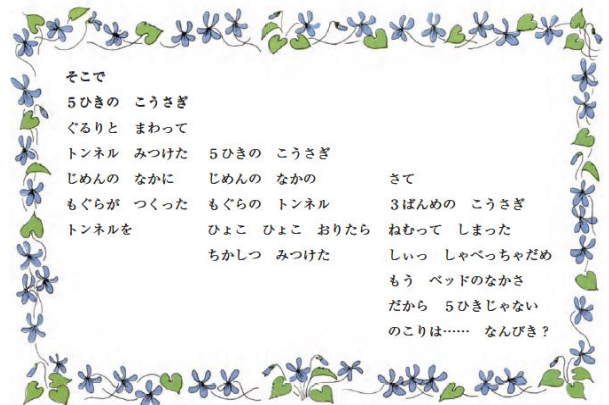 そこで
５ひきの　こうさぎ
ぐるりと　まわって
トンネル　みつけた
じめんの　なかに
もぐらが　つくった
トンネルを
５ひきの　こうさぎ
じめんの　なかの
もぐらの　トンネル
ひょこ　ひょこ　おりたら
ちかしつ　みつけた
さて
３ばんめの　こうさぎ
ねむって　しまった
しぃっ　しゃべっちゃだめ
もう　ベッドのなかさ
だから　５ひきじゃない
のこりは……　なんびき？